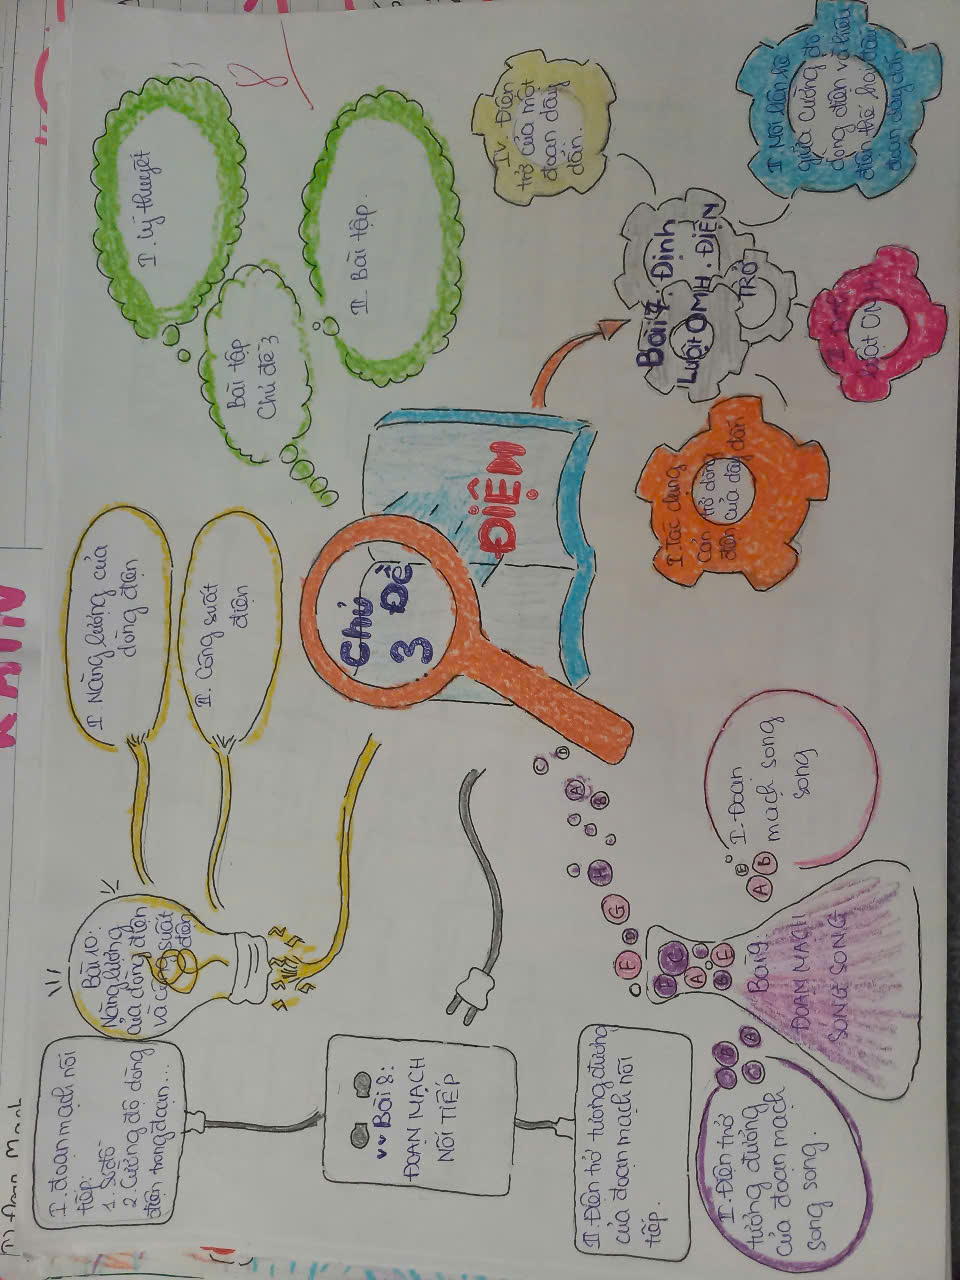 Chủ
3 Đề
ĐIỆN
Bài 7. Định
Luật OMH. ĐIỆN
TRỞ
I. Tác dụng
cản trở dòng
điện của dây dẫn
Luật
IV. Điện
trở của một
đoạn dây
dẫn.
giữa cường độ
dòng điện và hiệu
điện thế hai đầu
đoạn dây dẫn
Bài 8:
ĐOẠN MẠCH
NỐI TIẾP
I. đoạn mạch nối
tiếp.
1. Sơ đồ
2. Cường độ dòng
điện trong đoạn...
II. Điện trở tương đương
của đoạn mạch nối
tiếp.
Bài 9:
ĐOẠN MẠCH
SONG SONG
I. Đoạn
mạch song
song
II. Điện trở
tương đương
của đoạn mạch
song song.
Bài 10:
Năng lượng
của dòng điện
và công suất
điện
I Năng lượng của
dòng điện
II. Công suất
điện
Bài tập
Chủ đề 3
I. lý thuyết
II. Bài tập.
8
C
D
A
B
H
G
E
A
B